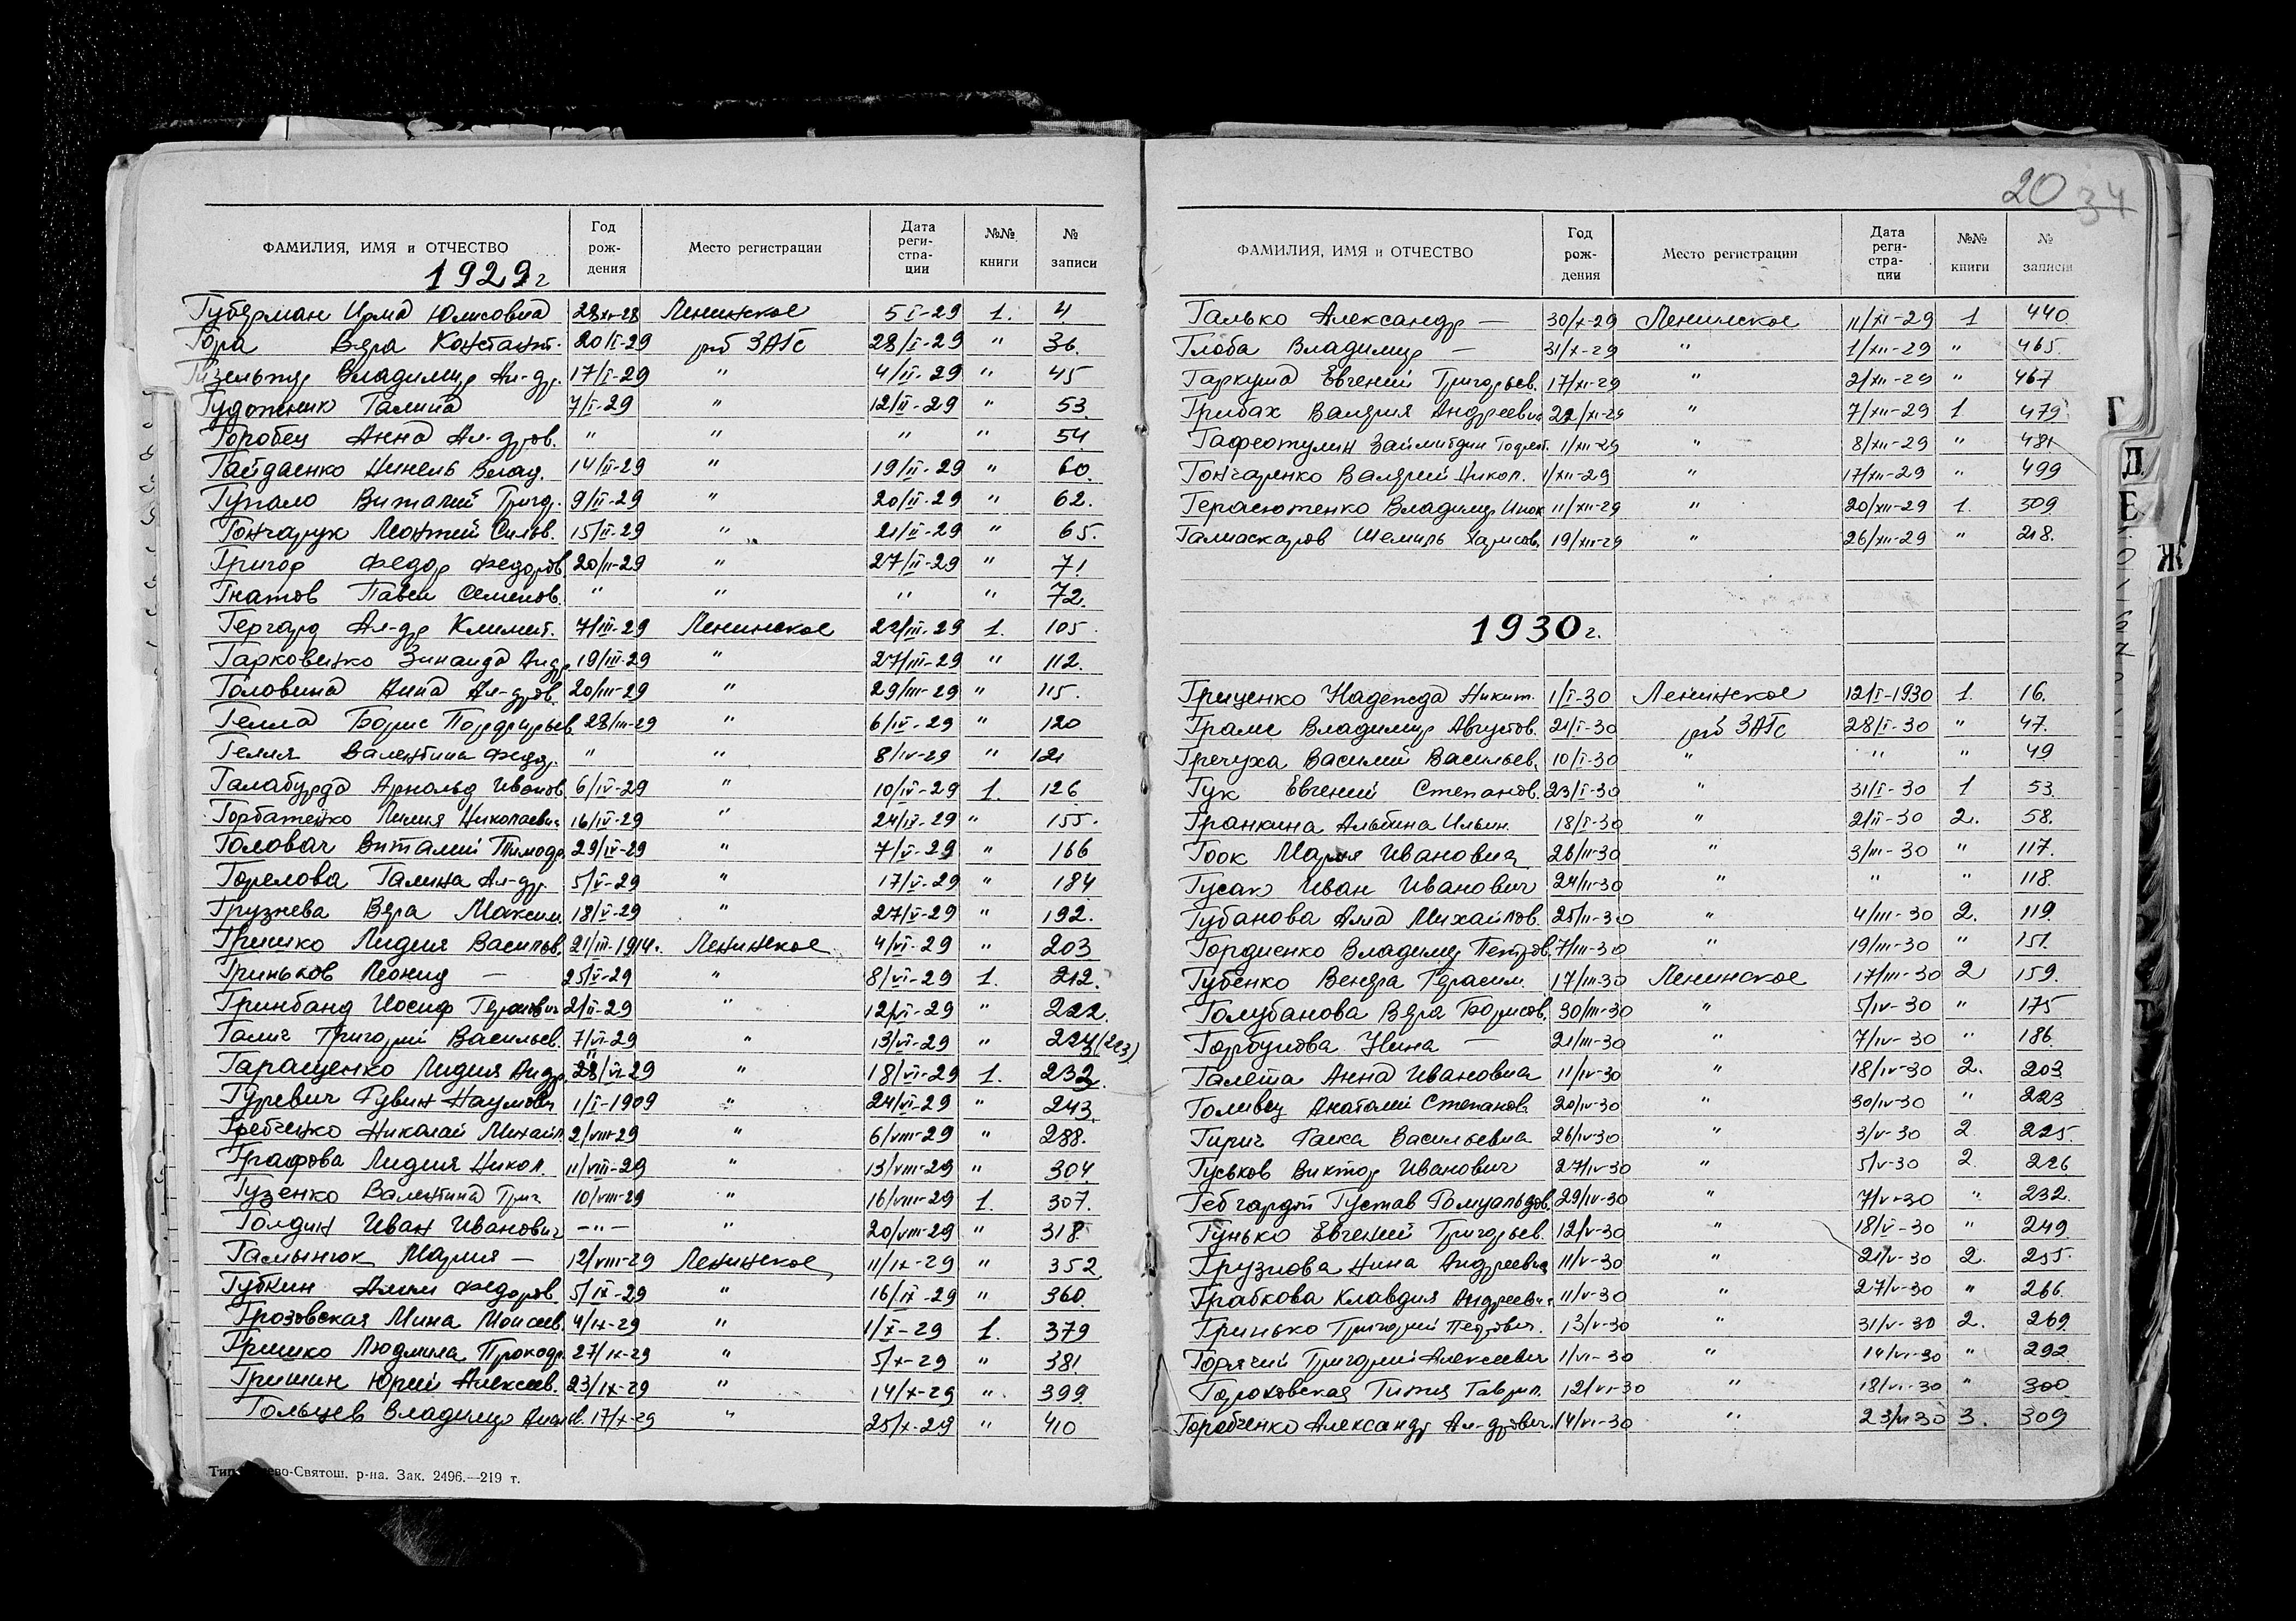 20 34
ФАМИЛИЯ, ИМЯ и ОТЧЕСТВО Год рождения Место регистрации Дата регистрации №№ книги № записи
1929г
Губерман Ирма Юлисовна 28/XII-28 Ленинское 5 I-29 1. 4
Гора Вера Констант. 20/I-29 рай ЗАГс 28/I-29 " 36.
Владимир Ал-др. 17/I-29 " 4/II-29 " 45
Галина 7/I-29 " 12/II-29 " 53.
Горобец Анна Ал-дров. " " " " 54
Гайдаенко Нинель Влад. 14/II-29 " 19/II-29 " 60.
Гупало Виталий Григ. 9/II-29 " 20/II-29 " 62.
Гончарук Леонтий Сильв. 15/II-29 " 21/II-29 " 65.
Григор Федор Федоров. 20/II-29 " 27/II-29 " 71
Гнатов Павел Семенов. " " " " 72.
Гергард Ал-др Климент. 7/III-29 Ленинское 22/III-29 1. 105
Гарковенко Зинаида Андр. 19/III-29 " 27/III-29 " 112.
Головина Анна Ал-дров. 20/III-29 " 29/III-29 " 115.
Гелла Борис Порфирьев. 28/III-29 " 6/IV-29 " 120
Гелия Валентина Федор. " " 8/IV-29 " 121
Галабурда Арнольд Иванов. 6/IV-29 " 10/IV-29 1. 126
Горбатенко Лилия Николаевна 16/IV-29 " 24/IV-29 " 155.
Головач Виталий Тимоф. 29/IV-29 " 7/V-29 " 166
Горелова Галина Ал-др. 5/V-29 " 17/V-29 " 184
Грузнева Вера Максим. 18/V-29 " 27/V-29 " 192.
Гришко Лидия Васильев. 21/III-1914г. Ленинское 4/VI-29 " 203
Гриньков Леонид — 25/V-29 " 8/VI-29 1. 212.
Гринбанд Иосиф 2/II-29 " 12/VI-29 " 222.
Галич Григорий Васильев. 7/VI-29 " 13/VI-29 " 224 (223)
Гаращенко Лидия Андр. 28/VI-29 " 18/VI-29 1. 232.
Гуревич Рувин Наумович 1/I-1909 " 24/VI-29 " 243.
Гребченко Николай Михайл. 2/VIII-29 " 6/VIII-29 " 288.
Графова Лидия Никол. 11/VIII-29 " 13/VIII-29 " 304.
Гузенко Валентина Григ. 10/VIII-29 " 16/VIII-29 1. 307.
Голдин Иван Иванович — " — " 20/VIII-29 " 318.
Галынюк Мария — 12/VIII-29 Ленинское 11/IX-29 " 352
Губкин Алим Федоров. 5/IX-29 " 16/IX-29 " 360.
Грозовская Мина Моисеев. 4/IX-29 " 1/X-29 1. 379
Гришко Людмила Прокоф. 27/IX-29 " 5/X-29 " 381.
Гришин Юрий Алексеев. 23/IX-29 " 14/X-29 " 399.
Гольцев Владимир 17/X-29 " 25/X-29 " 410
Тип. -Святош. р-на. Зак. 2496.—219 т.
ФАМИЛИЯ, ИМЯ и ОТЧЕСТВО Год рождения Место регистрации Дата регистрации №№ книги № записи
Галько Александр — 30/X-29 Ленинское 11/XI-29 1 440
Глоба Владимир — 31/X-29 " 1/XII-29 " 465.
Гаркуша Евгений Григорьев. 17/XI-29 " 2/XII-29 " 467
Грибах Валерия Андреевна 22/XI-29 " 7/XII-29 1. 479
Гафеотулин 1/XII-29 " 8/XII-29 " 481
Гончаренко Валерий Никол. 1/XII-29 " 17/XII-29 " 499
Герасютенко Владимир 11/XII-29 " 20/XII-29 1. 509
Галиаскаров Шемиль Харисов. 19/XII-29 " 26/XII-29 " 218.
1930г.
Гриценко Надежда Никит. 1/I-30 Ленинское 12/I-1930 1. 16.
Грамс Владимир Августов. 21/I-30 рай ЗАГс 28/I-30 " 47.
Гречуха Василий Васильев. 10/I-30 " " " 49
Гук Евгений Степанов. 23/I-30 " 31/I-30 1 53.
Гранкина Альбина Ильин. 18/I-30 " 2/II-30 2. 58.
Гоок Мария Ивановна 26/II-30 " 3/III-30 " 117.
Гусак Иван Иванович 24/II-30 " " " 118.
Губанова Алла Михайлов. 25/II-30 " 4/III-30 2. 119.
Гордиенко Владимир Петров. 7/III-30 " 19/III-30 " 151.
Губенко Венера Герасим. 17/III-30 Ленинское 17/III-30 2 159.
Голубанова Вера Борисов. 30/III-30 " 5/IV-30 " 175
Горбунова Нина — 21/III-30 " 7/IV-30 " 186.
Галета Анна Ивановна 11/IV-30 " 18/IV-30 2. 203
Голивец Анатолий Степанов. 20/IV-30 " 30/IV-30 " 223
Гирич Раиса Васильевна 26/IV-30 " 3/V-30 2. 225.
Гуськов Виктор Иванович 27/IV-30 " 5/V-30 2. 226
Гебгардт Густав Ромуальдов. 29/IV-30 " 7/V-30 " 232.
Гунько Евгений Григорьев. 12/V-30 " 18/V-30 " 249
Грузнова Нина Андреевна 11/V-30 " 21/V-30 2. 255.
Грабкова Клавдия Андреевна 11/V-30 " 27/V-30 " 266.
Гринько Григорий Петрович. 13/V-30 " 31/V-30 2. 269.
Горячий Григорий Алексеевич 1/VI-30 " 14/VI-30 " 292
Гороховская Гитя Гаврил. 12/VI-30 " 18/VI-30 " 300
Горобченко Александр Ал-дрович. 14/VI-30 " 23/VI-30 3. 309
Г
Д
Е
Ж